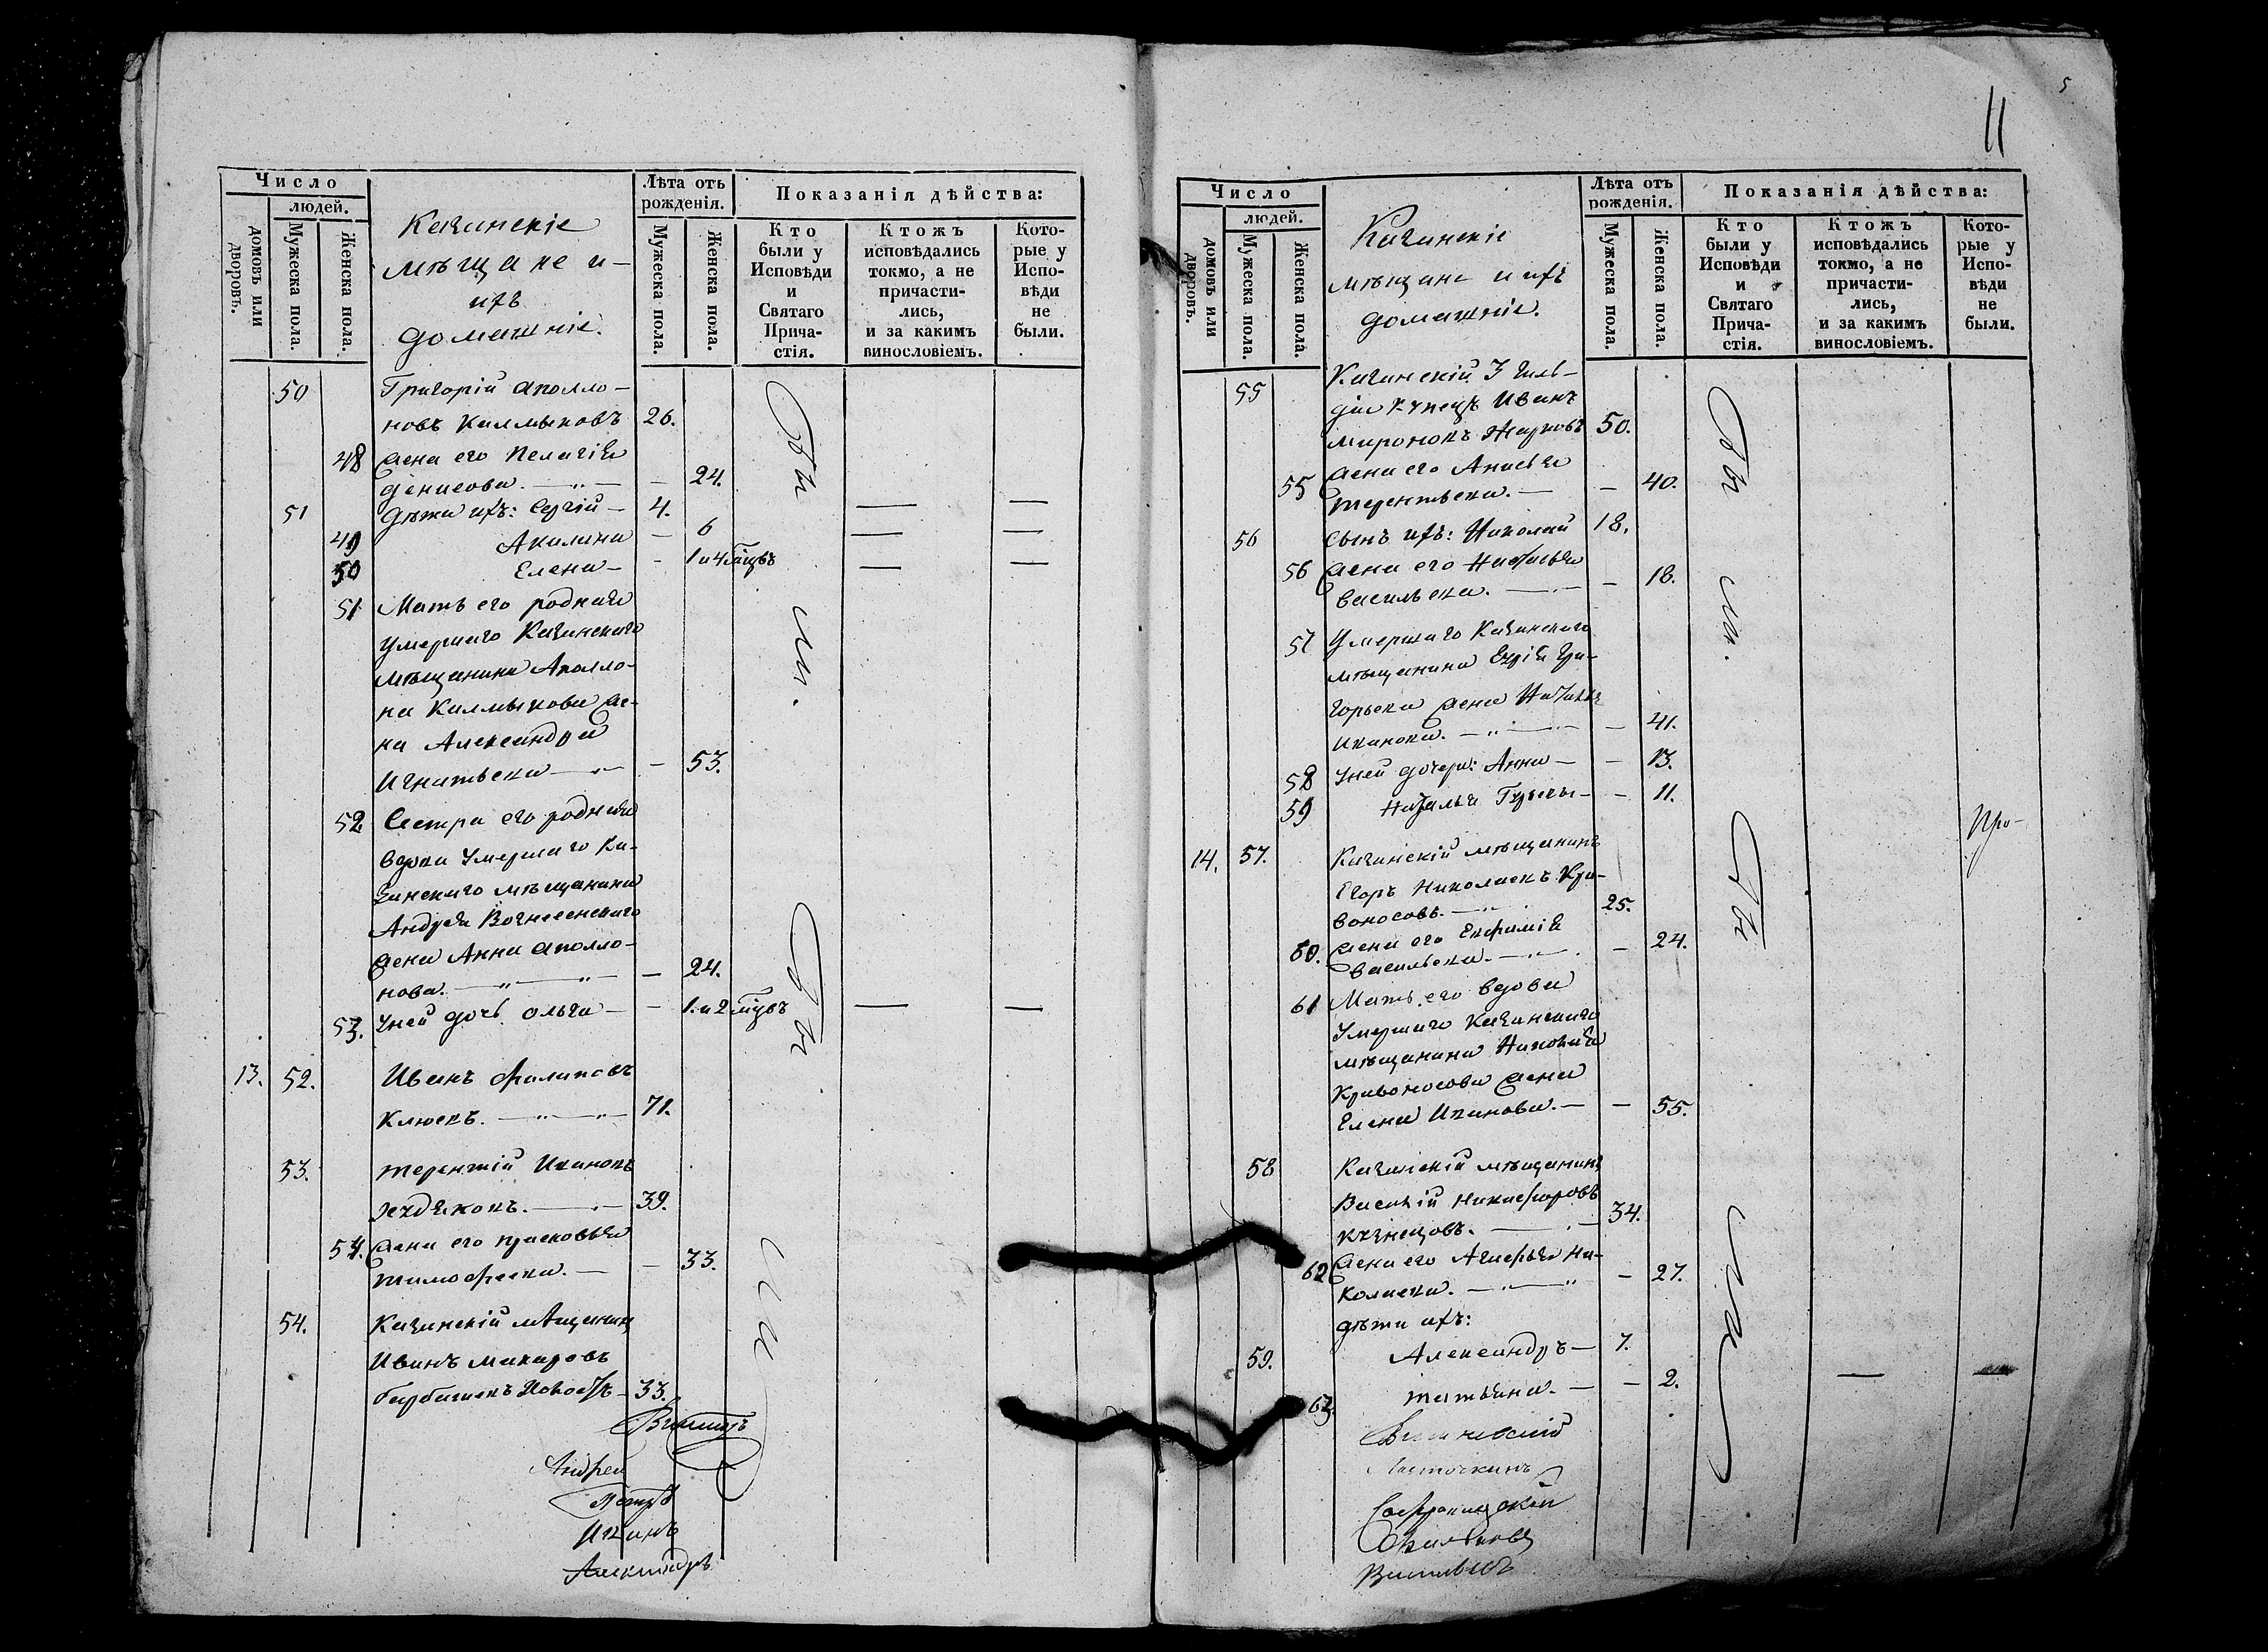 Число
людей.
домовъ или дворовъ.
Мужеска пола.
Женска пола.
Качинскіе
мѣщане и
ихъ
домашніе.
Лѣта отъ рожденія.
Мужеска пола.
Женска пола.
Показанія дѣйства:
Кто были у Исповѣди и Святаго Прича-стія.
Ктожъ исповѣдались токмо, а не причасти-лись, и за какимъ винословіемъ.
Кото-рые у Испо-вѣди не были.
50 Григорій Аполло-
новъ Калмыковъ 26.
48 Жена его Пелагія
Денисова. — 24.
51 Дѣти ихъ: Сергій — 4.
49 Акилина — 6
50 Елена — 1 и 4 мцвъ
51 Мать его родная
умершаго Качинскаго
мѣщанина Аполло-
на Калмыкова же-
на Александра
Игнатьева — 53.
52 Сестра его родная
вдова умершаго Ка-
чинскаго мѣщанина
Андрея Вознесенскаго
жена Анна Аполло-
нова. — 24.
53. У ней дочь Ольга — 1 и 2 мцвъ
Были.
13. 52. Иванъ Филиповъ
Клюевъ. — 71.
53. Терентій Ивановъ
39.
54. Жена его Прасковья
Тимофеева. — 33.
54. Качинскій мѣщанинъ
Иванъ Макаровъ
33.
Были
Андрей
Петръ
Иванъ
Александръ
11
5
Число
людей.
домовъ или дворовъ.
Мужеска пола.
Женска пола.
Качинскіе
мѣщане и ихъ
домашніе.
Лѣта отъ рожденія.
Мужеска пола.
Женска пола.
Показанія дѣйства:
Кто были у Исповѣди и Святаго Прича-стія.
Ктожъ исповѣдались токмо, а не причасти-лись, и за какимъ винословіемъ.
Кото-рые у Испо-вѣди не были.
55 Качинскій 3 гиль-
діи купецъ Иванъ
Мироновъ Жарковъ 50.
55 Жена его Анисья
Терентьева. — 40.
56 Сынъ ихъ: Николай 18.
56 Жена его Наталья
Васильева. — 18.
57 Умершаго Качинскаго
мѣщанина
жена Наталья
Иванова. — 41.
58 У ней дочери: Анна — 13.
59 Наталья — 11.
Были.
14. 57. Качинскій мѣщанинъ
Егоръ Николаевъ Кри-
воносовъ. — 25.
60. Жена его Евфимія
Васильева. — 24.
61 Мать его вдова
умершаго Качинскаго
мѣщанина Николая
Кривоносова жена
Елена Иванова. — 55.
58 Качинскій мѣщанинъ
Василій Никифоровъ
Кузнецовъ. — 34.
62 Жена его Агафья Ни-
колаева. — 27.
Дѣти ихъ:
59. Александръ — 7.
63. Татьяна. — 2.
Были
Ласточкинъ